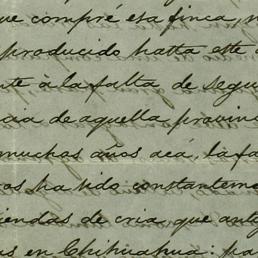 ue compré esta finca, n
producido hasta este
nte à la falta de segu
cia de aquella provinc
muchas años acá, la fa
os ha sido constanteme
iendas de cria, que ant
as en Chihuahua: pa